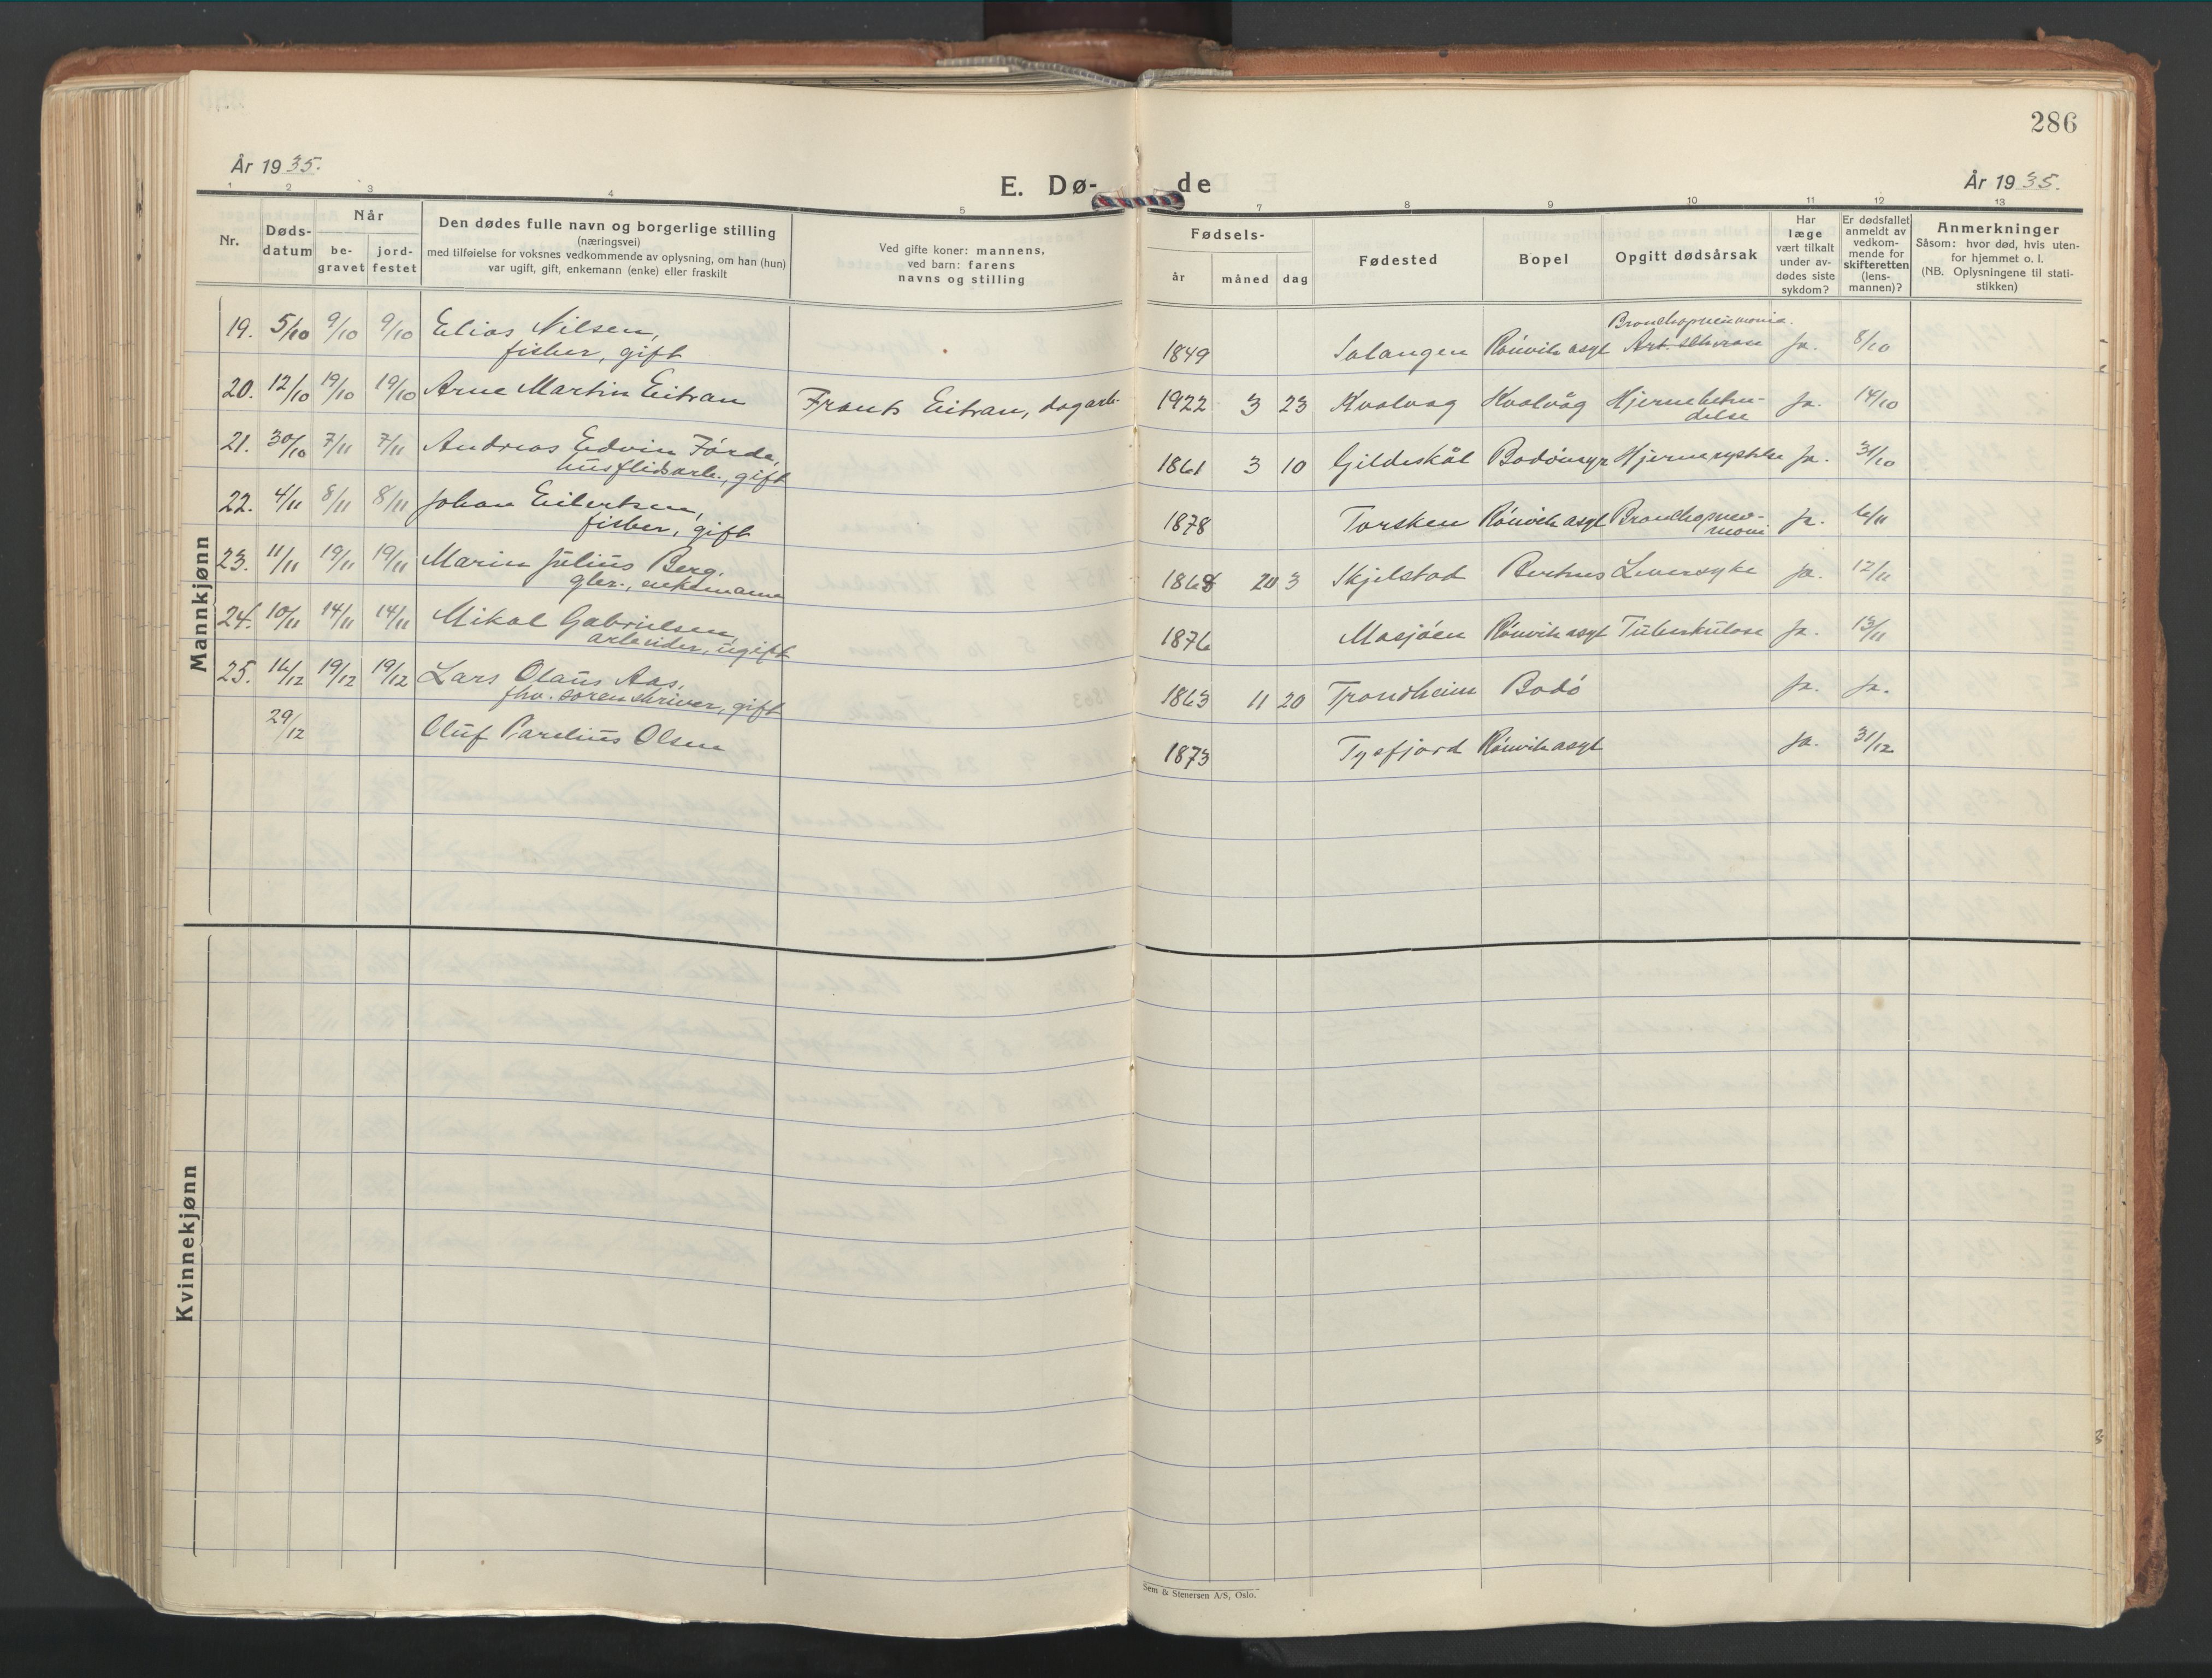 286
År 1935.
E. Dø-
de
År 1935.
1 2 3 4 5 7 8 9 10 11 12 13
Nr.
Døds-
datum
Når
be-
gravet
jord-
festet
Den dødes fulle navn og borgerlige stilling
(næringsvei)
med tilføielse for voksnes vedkommende av oplysning, om han (hun)
var ugift, gift, enkemann (enke) eller fraskilt
Ved gifte koner: mannens,
ved barn: farens
navns og stilling
Fødsels-
år
måned
dag
Fødested
Bopel
Opgitt dødsårsak
Har
læge
vært tilkalt
under av-
dødes siste
sykdom?
Er dødsfallet
anmeldt av
vedkom-
mende for
skifteretten
(lens-
mannen)?
Anmerkninger
Såsom: hvor død, hvis uten-
for hjemmet o. l.
(NB. Oplysningene til stati-
stikken)
Mannkjønn
Bronchopneumonia.
19. 5/10 9/10 9/10 Elias Nilsen, 1849 Salangen Rönvik asyl Art. Ja. 8/10
fisker, gift
20. 12/10 19/10 19/10 Arne Martin Eitran Frants Eitran, dagarb. 1922 3 23 Kvalvag Kvalvåg Hjernebeten- Ja. 14/10
delse
21. 30/10 7/11 7/11 Andreas Edvin Förde, 1861 3 10 Gildeskål Bodömyr Ja. 31/10
husflidsarb., gift
22. 4/11 8/11 8/11 Johan Eilertsen, 1878 Torsken Rönvik asyl Bronchopneu- Ja. 6/11
fisker, gift moni
23. 11/11 19/11 19/11 Marin Julius Berg. 1868 20 3 Skjelstad Leversyke Ja. 12/11
gbr., enkemann
24. 10/11 14/11 14/11 Mikal Gabrielsen, 1876 Mosjöen Rönvik asyl Tuberkulose Ja. 13/11
arbeider, ugift
25. 16/12 19/12 19/12 Lars Olaus Aas, 1863 11 20 Trondheim Bodö Ja. Ja.
fhv. sorenskriver, gift
29/12 Oluf Parelius Olsen 1873 Tysfjord Rönvik asyl Ja. 31/12
Kvinnekjønn
Sem & Stenersen A/S, Oslo.